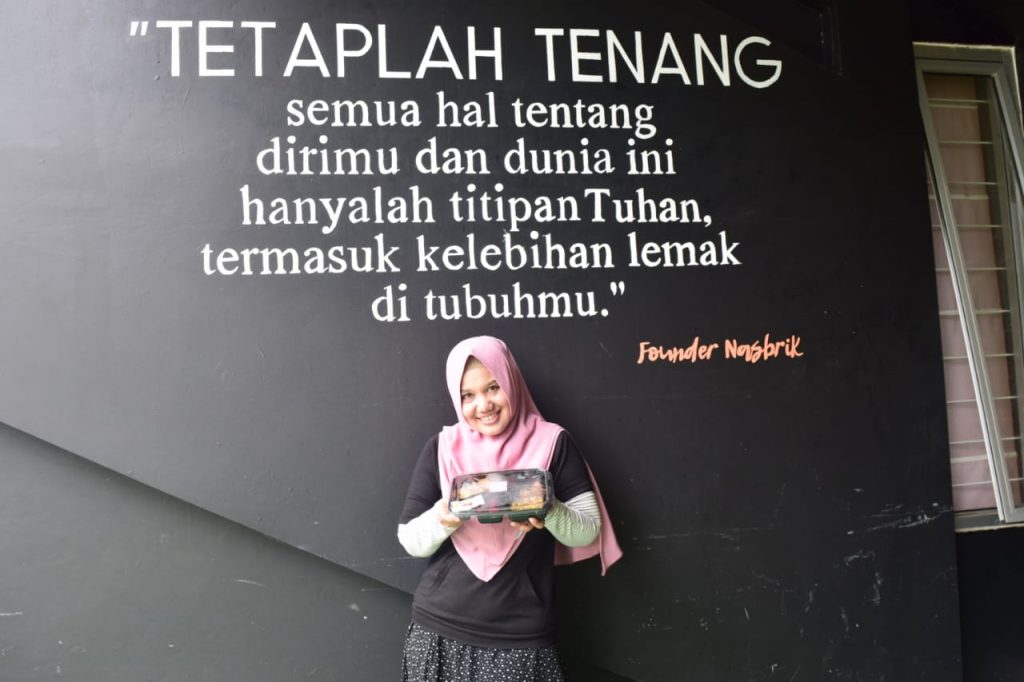 "TETAPLAH TENANG
semua hal tentang
dirimu dan dunia ini
hanyalah titipan Tuhan,
termasuk kelebihan lemak
di tubuhmu."
Founder Nasbrik